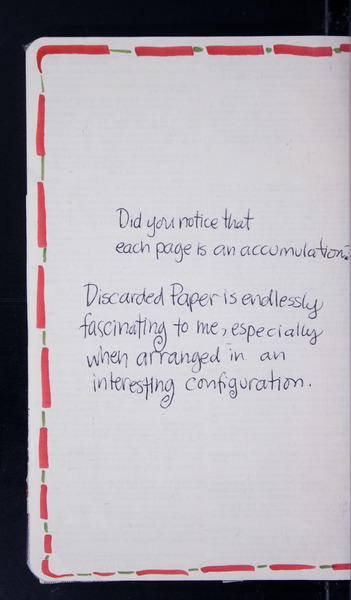 Did you notice that
each page is an accumulation?
Discarded Paper is endlessly
fascinating to me, especially
when arranged in an
interesting configuration.